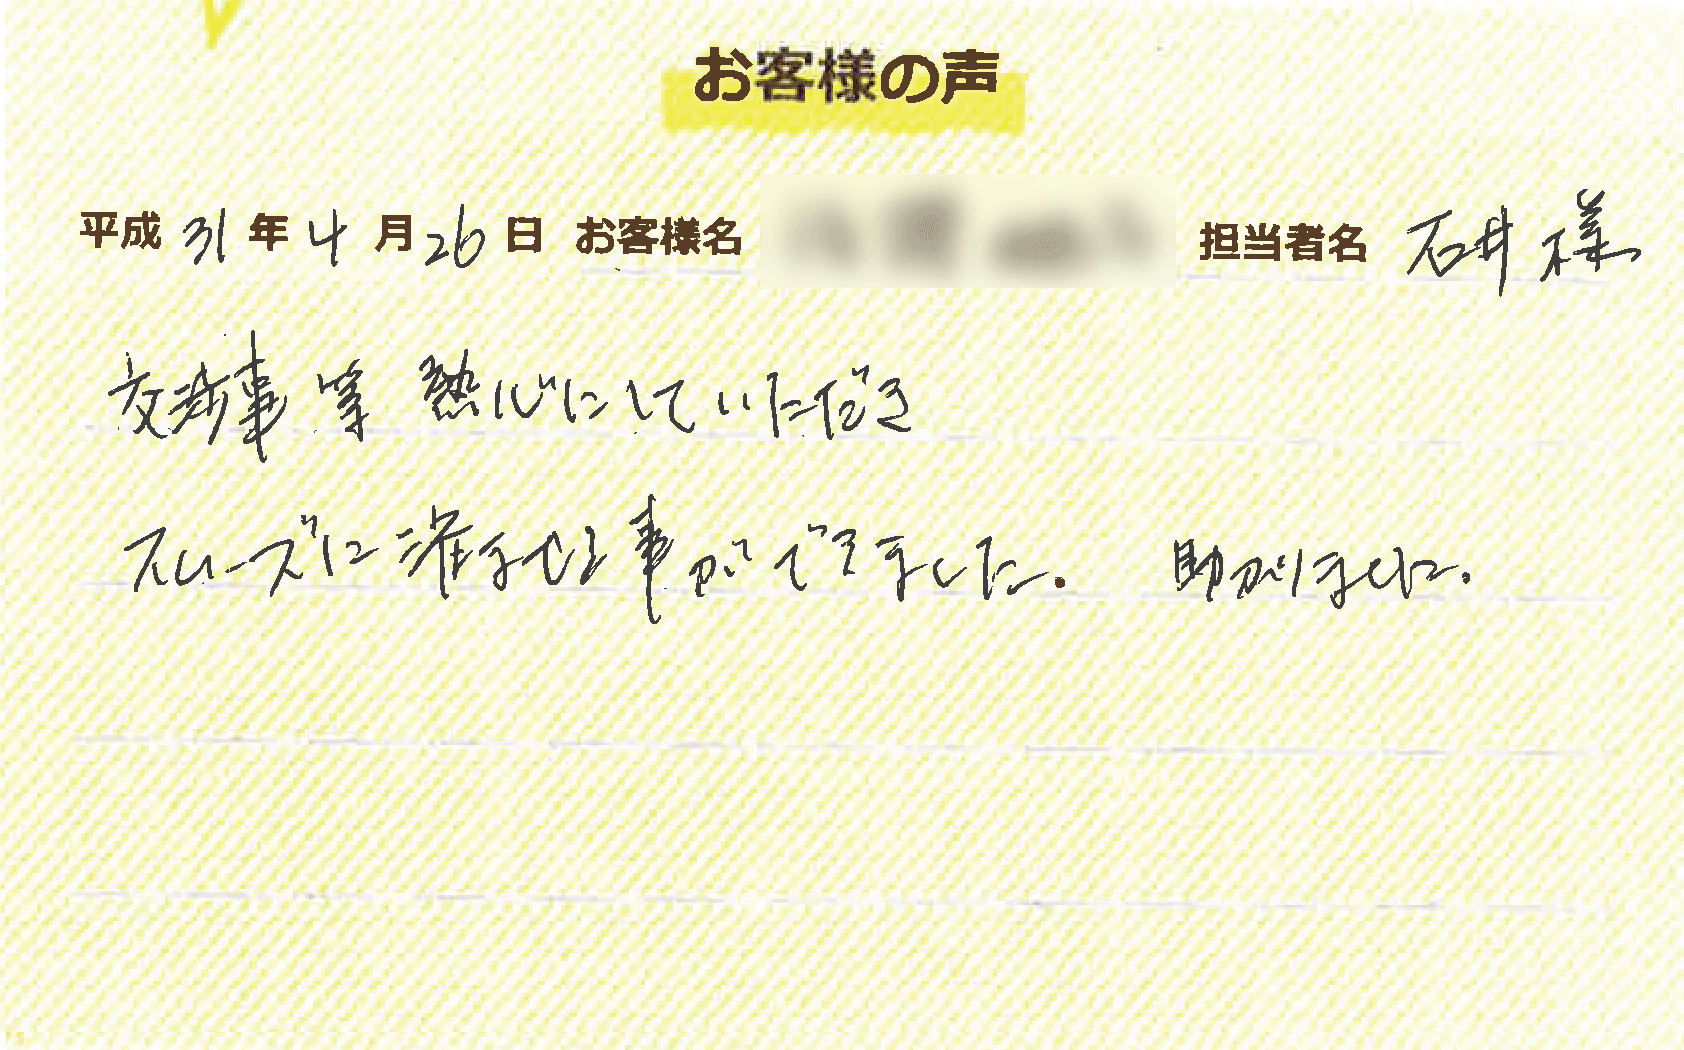 お客様の声
平成 31 年 4 月 26 日 お客様名 担当者名 石井 様
交渉事 等 熱心にしていただき
スムーズに済ませる事ができました。 助かりました。